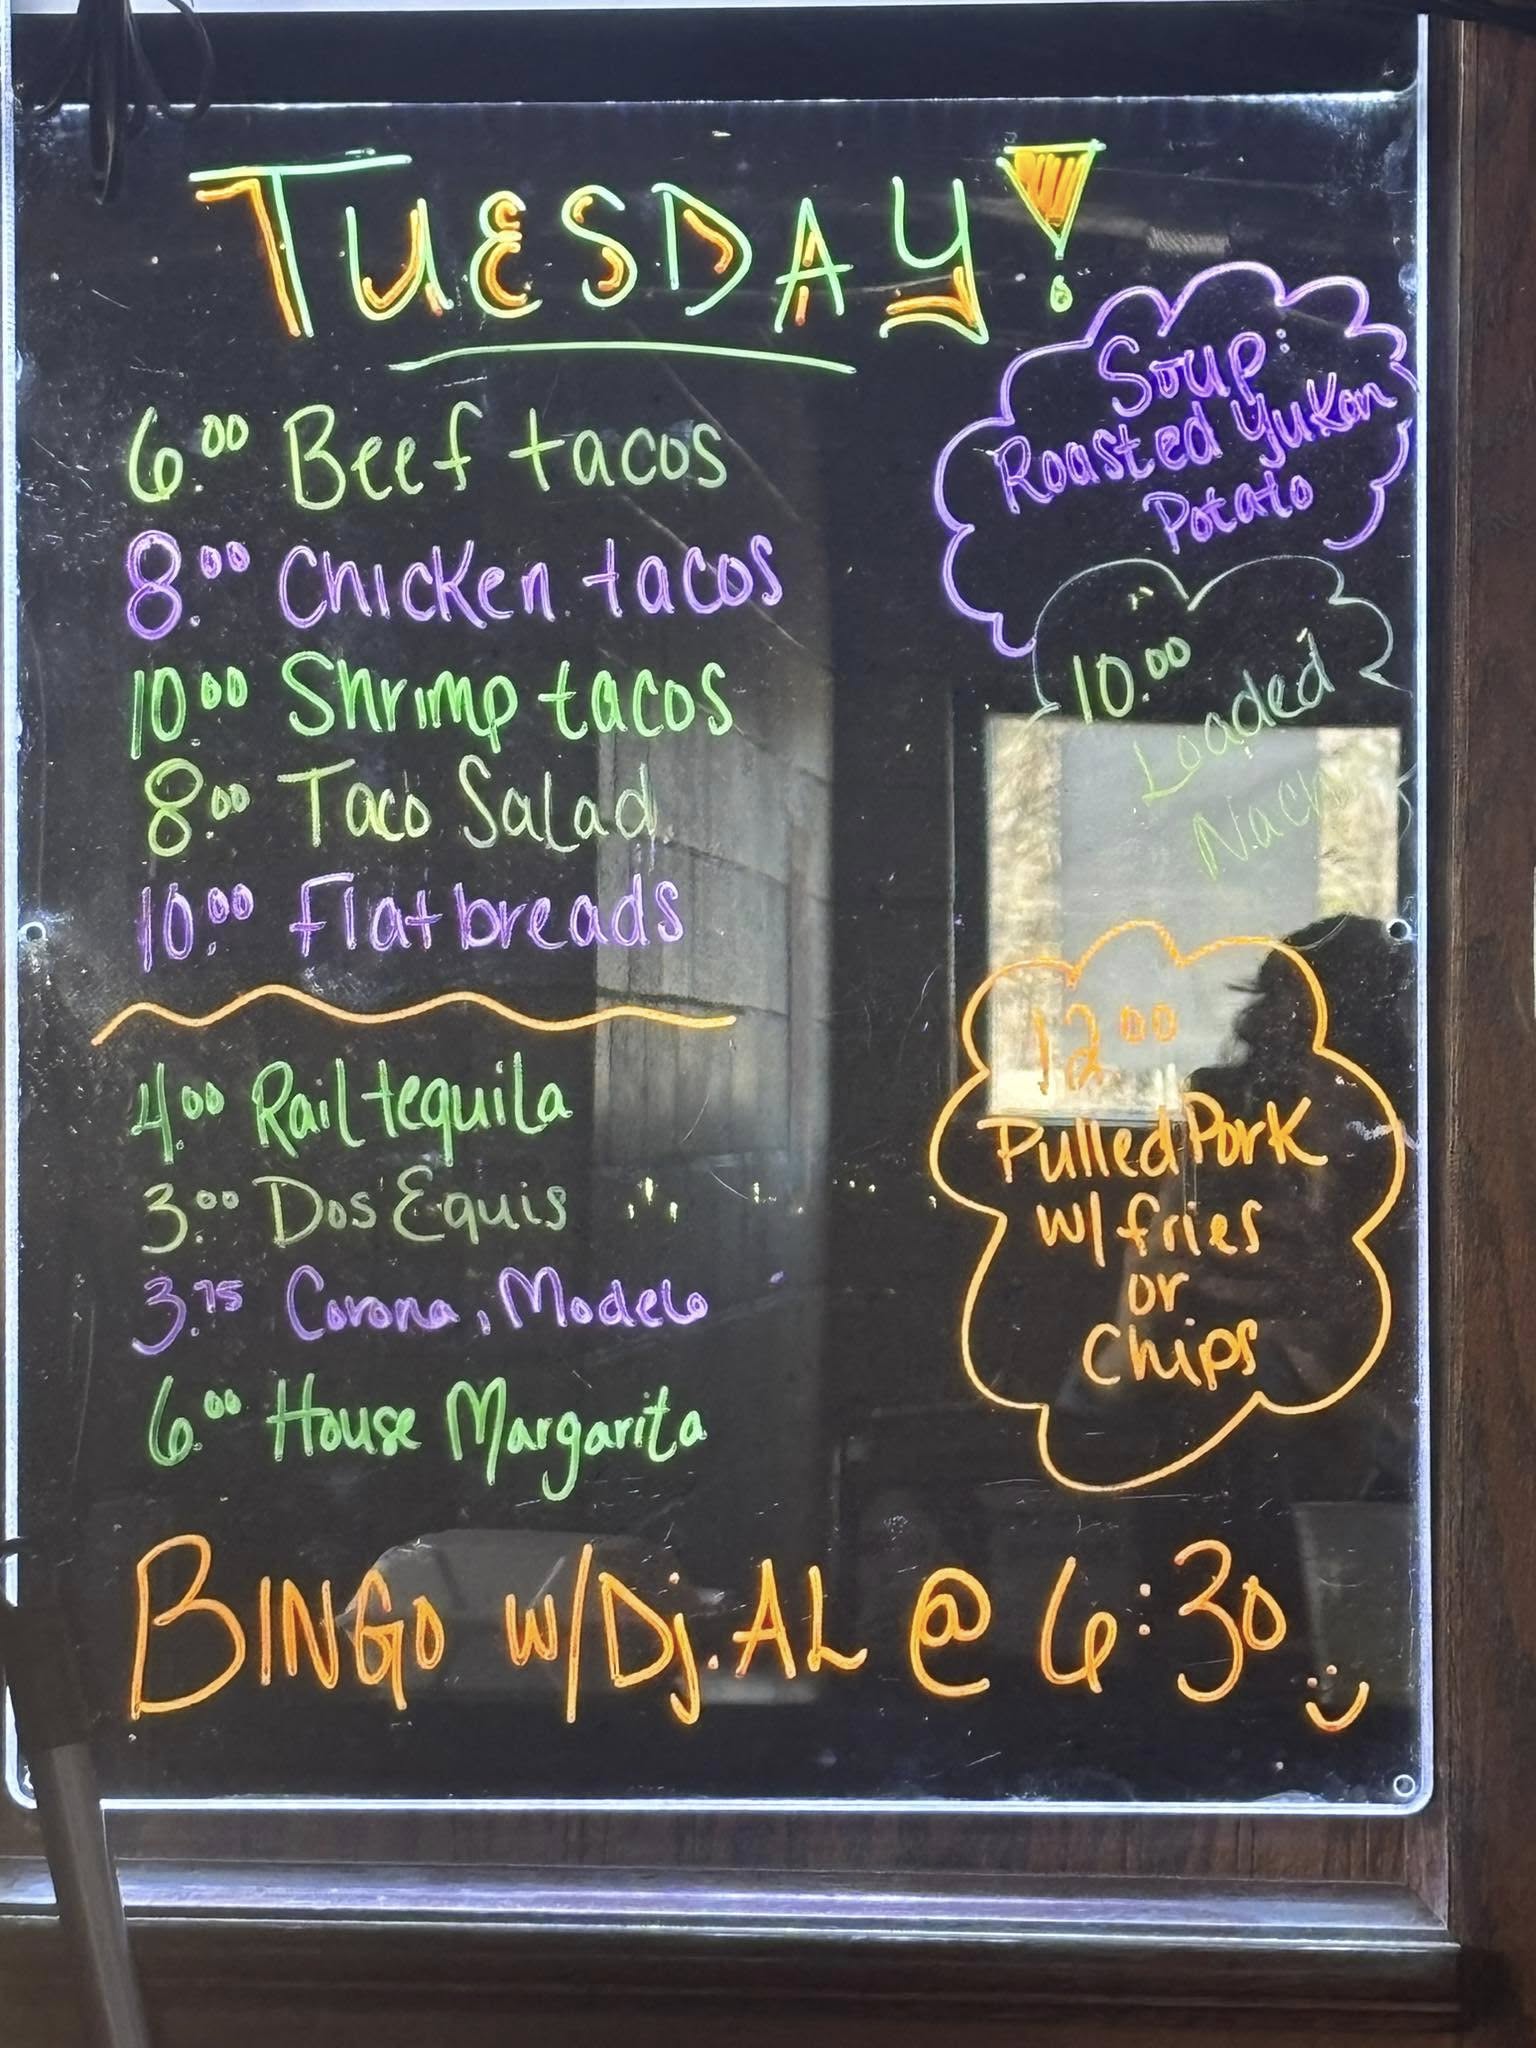 TUESDAY!
6.00 Beef tacos
8.00 Chicken tacos
10.00 Shrimp tacos
8.00 Taco Salad
10.00 Flatbreads
4.00 Rail tequila
3.00 Dos Equis
3.75 Corona, Modelo
6.00 House Margarita
Soup:
Roasted Yukon
Potato
10.00
Loaded
12.00
Pulled Pork
w/ fries
or
Chips
BINGO w/ Dj. AL @ 6:30